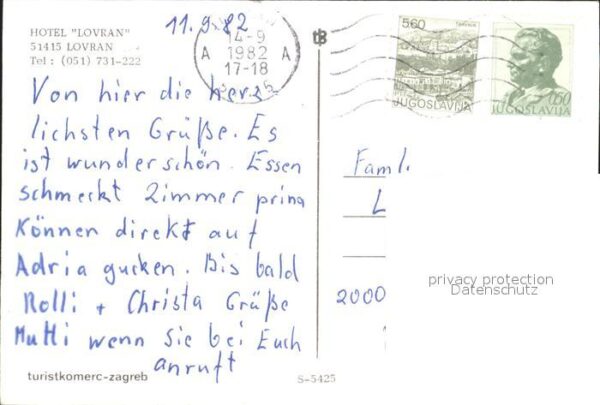 11.9.82
HOTEL "LOVRAN"
51415 LOVRAN
Tel : (051) 731-222
14-9
A 1982 A
17-18
tB
5.60
JUGOSLAVIJA
0.50
JUGOSLAVIJA
Von hier die herz
lichsten Grüße. Es
ist wunderschön. Essen
schmeckt Zimmer prima
Können direkt auf
Adria gucken. Bis bald
Rolli + Christa Grüße
Mutti wenn sie bei Euch
anruft
Faml.
L
2000
privacy protection
Datenschutz
turistkomerc-zagreb
S-5425